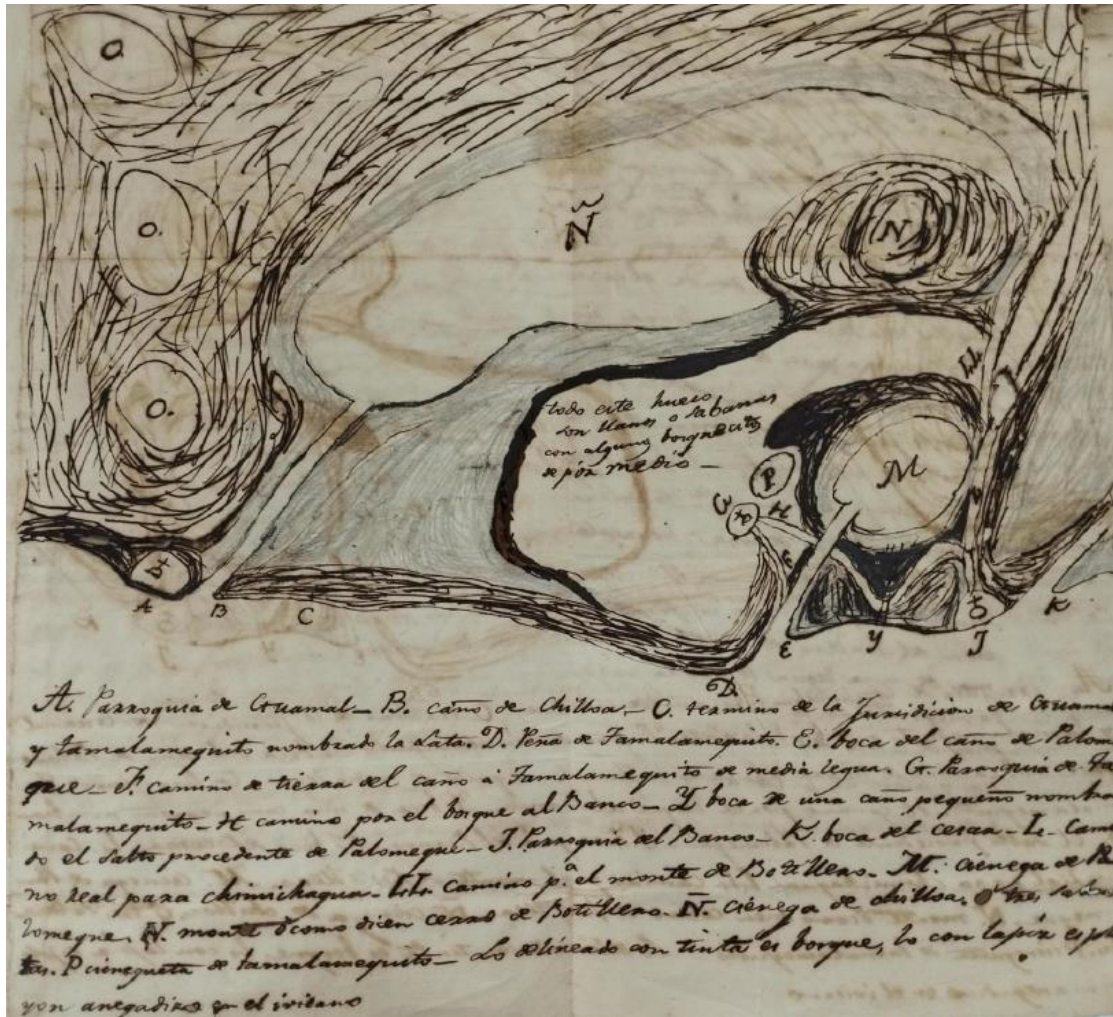 O.
O.
O.
Ñ
N
LL
L
todo este hueco
son llanos o sabanas
con alguno bosquecito
de por medio —
P
M
G
H
F
A
B
C
D.
E
Y
J
K
A. Parroquia de Guamal — B. caño de Chilloa, — C. termino de la Jurisdicion de Guama
y tamalamequito nombrado la Lata. D. Peña de Tamalamequito. E. boca del caño de Palome
que — F. camino de tierra del caño à Tamalamequito de media legua. G. Parroquia de Ta
malamequito — H camino por el borque al Banco — Y boca de una caño pequeño nombra
do el Salto procedente de Palomeque — J. Parroquia del Banco — K. boca del cesar — L. Cami
no real para chimichagua — LL. camino p.ª el monte de Botillero. M. ciénega de Pa
lomeque. N. monte ò como dicen cerro de Botillero. Ñ. ciénega de chilloa, O tres
tas. P cienegueta de tamalamequito — Lo delineado con tinta es borque, lo con lapiz es
yon anegadizo en el ivierno